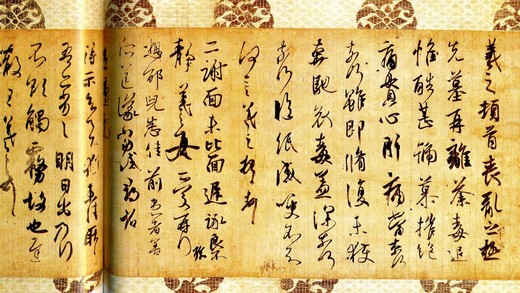 羲之頓首喪亂之極
先墓再離荼毒追
惟酷甚號慕摧絕
痛貫心肝痛當奈何
奈何雖即脩復未獲
奔馳哀毒益深奈何
奈何臨紙感哽不知
何言羲之頓首頓首
二謝面未比面遲詠良
靜羲之女愛再拜
邵兒悉佳前患者善
左邊劇
得示知足下猶未佳耿
吾亦劣明日出乃行
不欲觸霧故也遲
散王羲之頓首